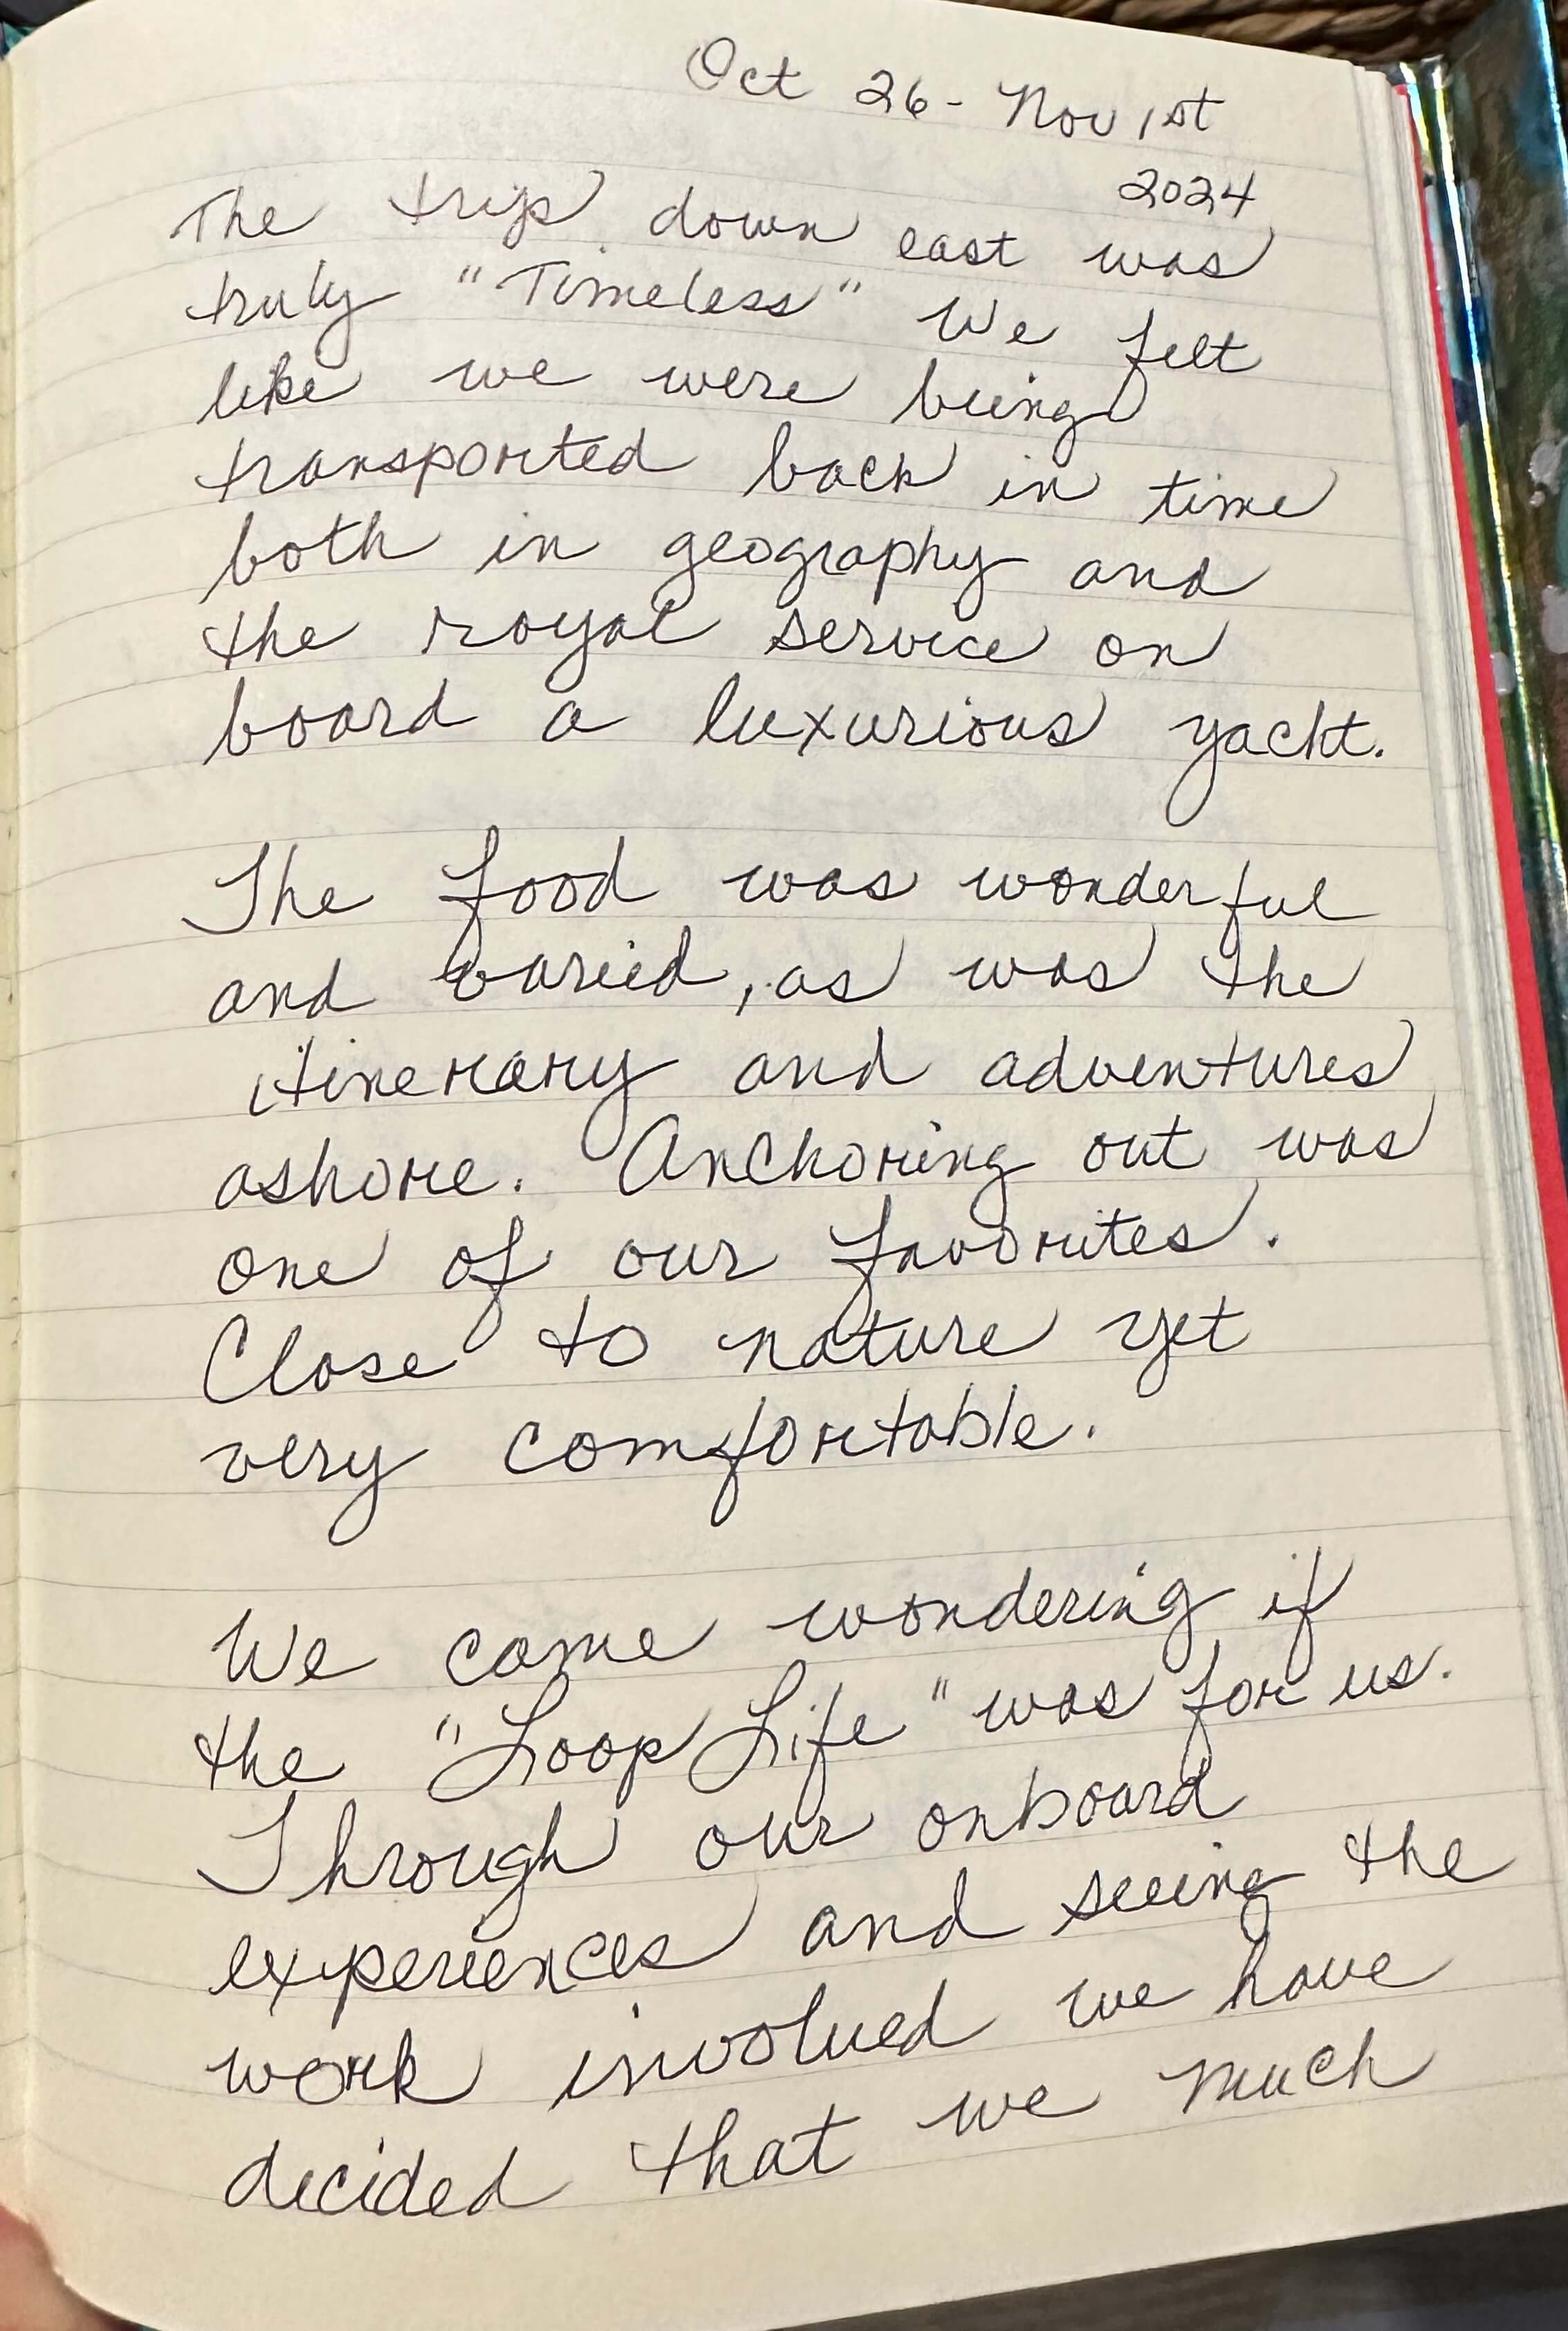 Oct 26 - Nov 1st
2024
The trip down east was
truly "Timeless" We felt
like we were being
transported back in time
both in geography and
the royal service on
board a luxurious yacht.
The food was wonderful
and varied, as was the
itinerary and adventures
ashore. Anchoring out was
one of our favorites.
Close to nature yet
very comfortable.
We came wondering if
the "Loop Life" was for us.
Through our onboard
experiences and seeing the
work involved we have
decided that we much